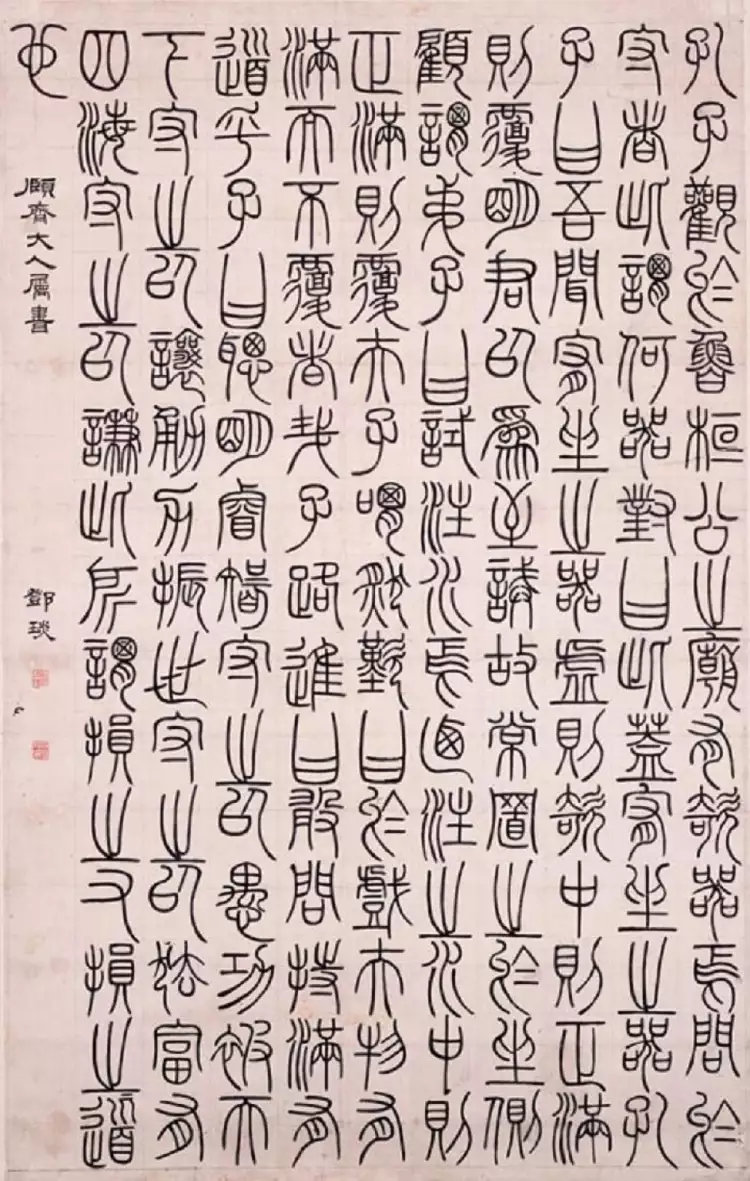 孔子觀於魯桓公之廟有欹器焉問於
守者此謂何器對曰此蓋宥坐之器孔
子曰吾聞宥坐之器虛則欹中則正滿
則覆明君以為至誠故常置之於坐側
顧謂弟子曰試注水焉乃注之水中則
正滿則覆夫子喟然歎曰於戲夫物有
滿而不覆者哉子路進曰敢問持滿有
道乎子曰聰明睿智守之以愚功被天
下守之以讓勇力振世守之以怯富有
四海守之以謙此所謂損之又損之道
也
頤齊大人屬書
鄧琰